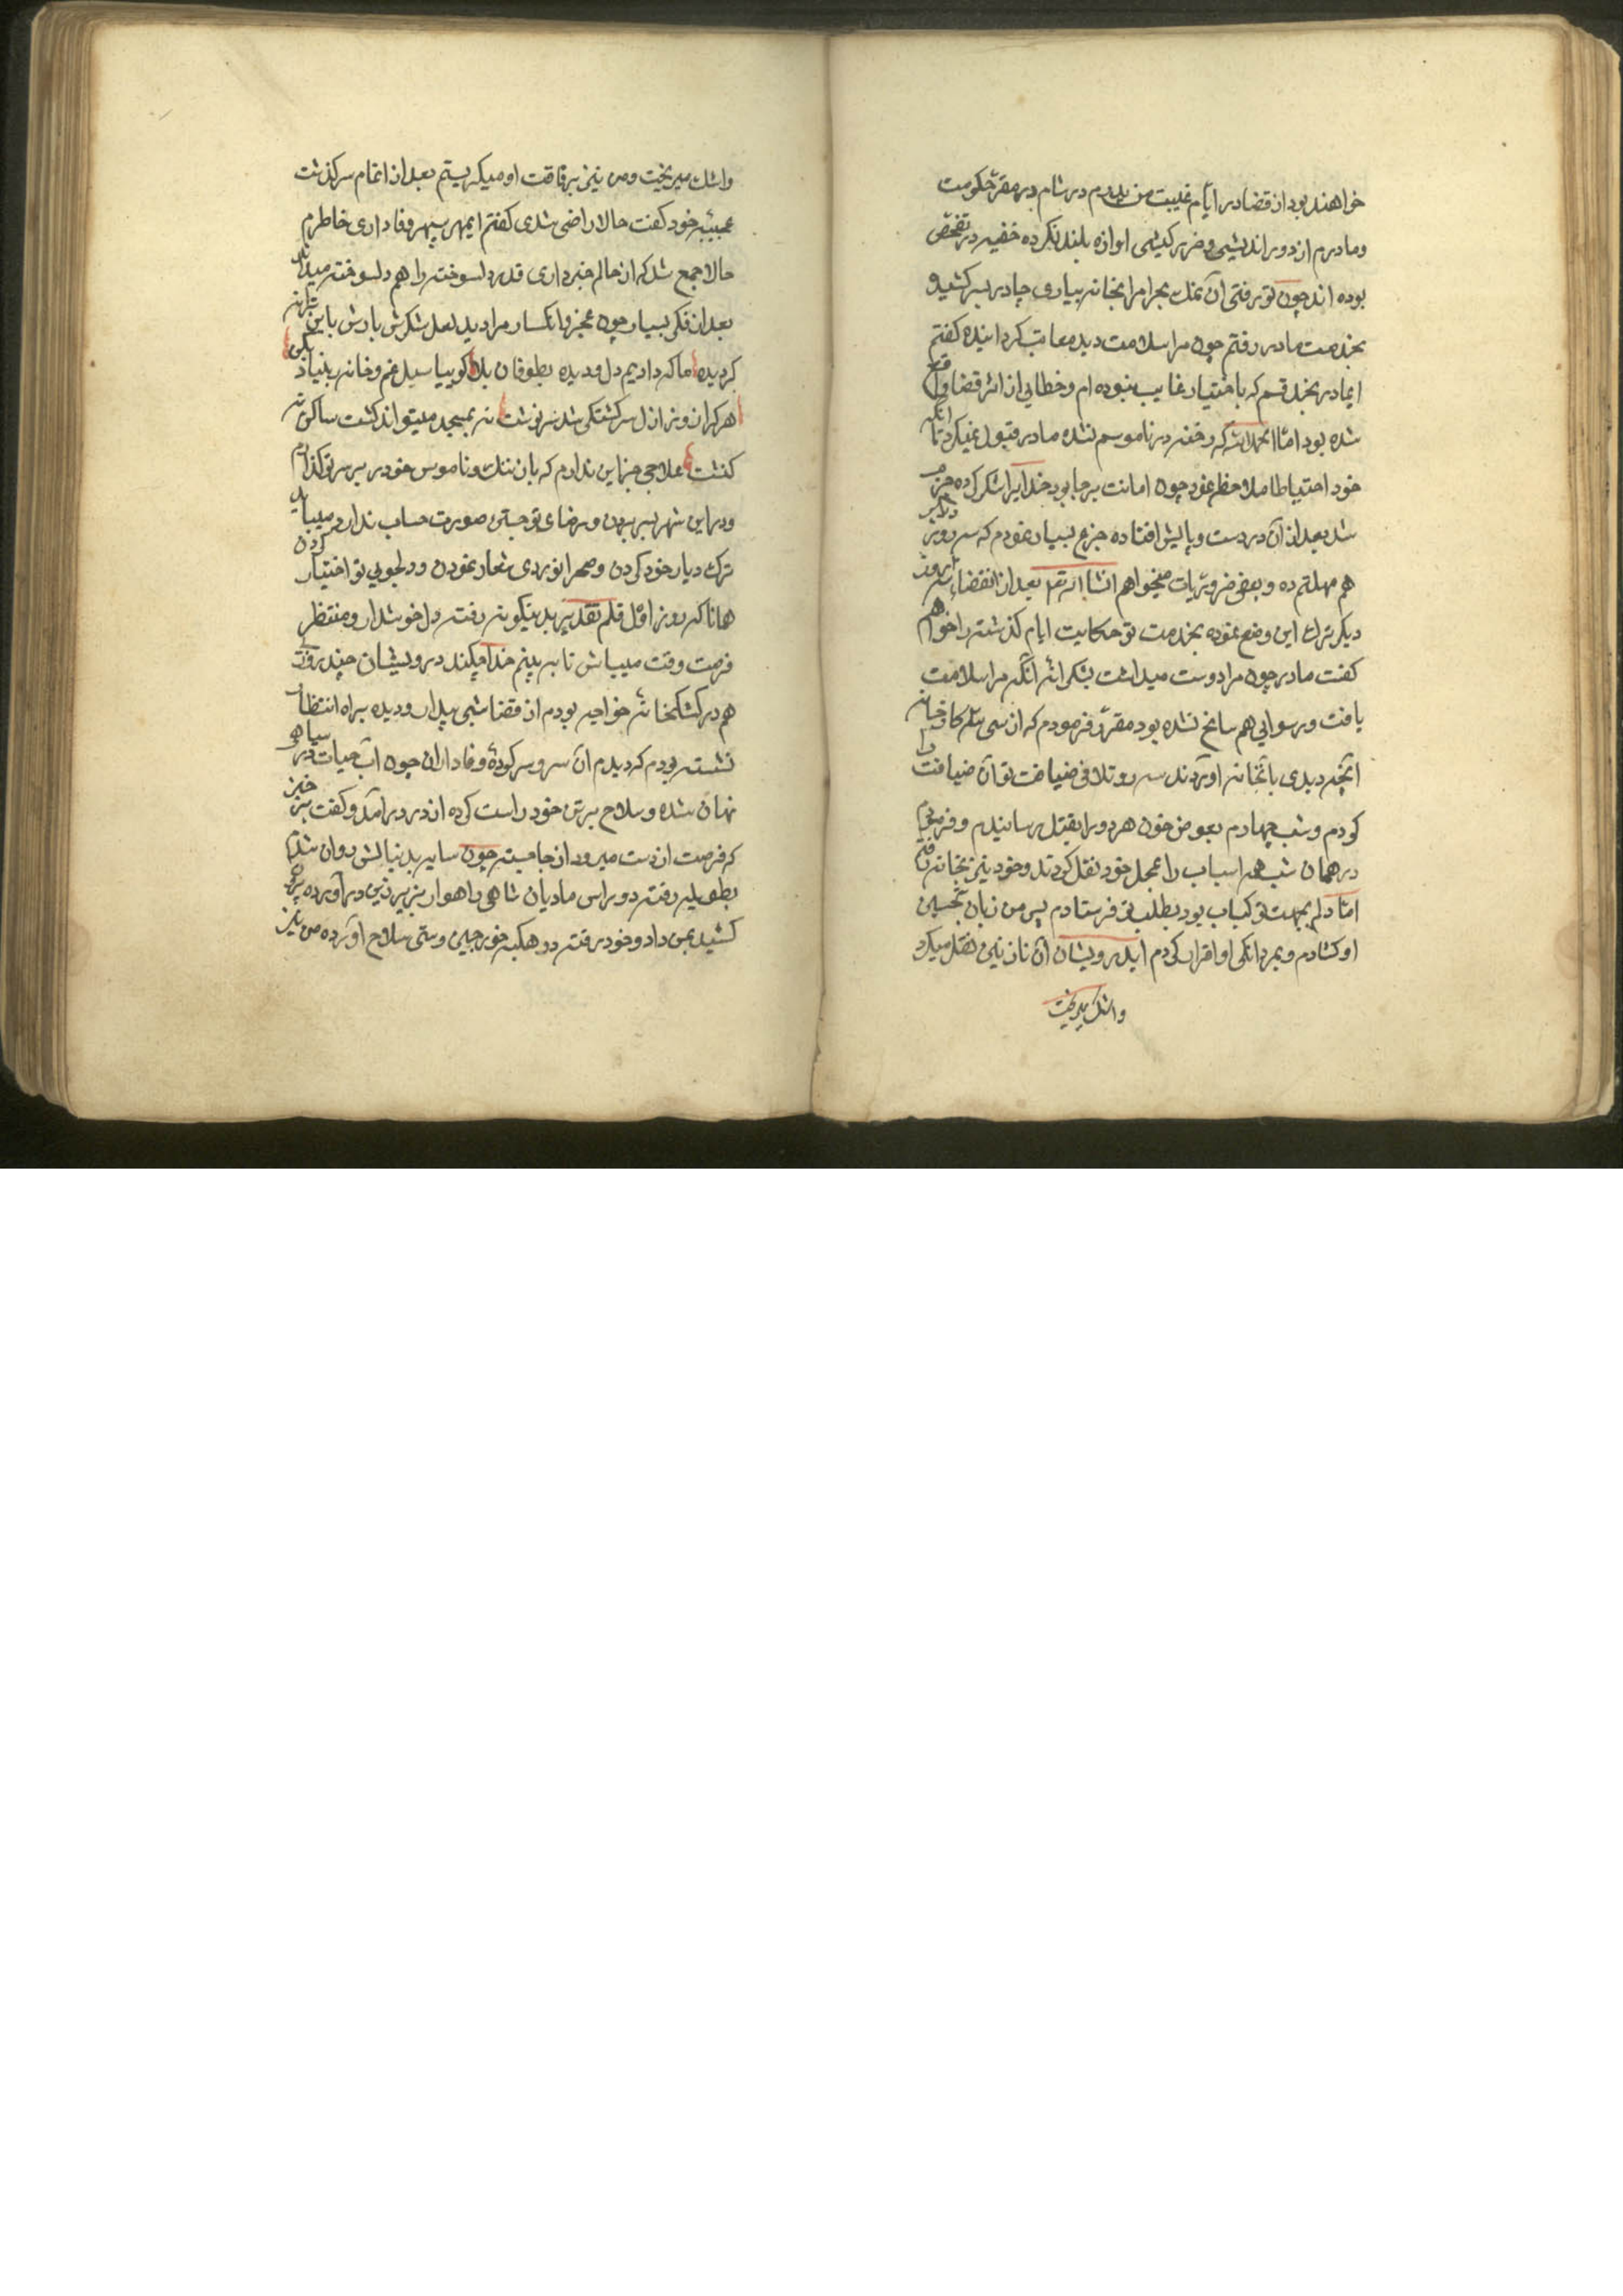 خواهند بود از قضا در ایّام غیبت من پدرم در شام در مقرّ حکومت
و مادرم از دور اندیشی و ضریر کیشی اوازه بلند نکرده خفیه در تفحّص
بوده اند چون تو رفتی آن نمک بحرام مرا بخانه بیاری چادر بسر کشید و
بخدمت مادر رفتم چون مرا سلامت دید معاتب کردانیده کفتم
ایمادر بخدا قسم که باختیار غایب نبوده ام و خطایی از اثر قضا واقع
شده بود امّا الحمد لله که رخنه در ناموسم نشده مادر قبول نمیکرد تا آنکه
خود احتیاطا ملاحظه نمود چون امانت برجا بود خدایرا شکر کرده
شد بعد از آن در دست و پایش افتاده جزع بسیار نمودم که سه روز دیکر
هم مهلتم ده و بعضی ضروریات میخواهم انشا الله تع بعد از انقضاء سه روز
دیکر ترک این وضع نموده بخدمت تو حکایت ایام کذشته را خواهم
کفت مادر چون مرا دوست میداشت بشکرانه آنکه مرا سلامت
یافت و رسوایی هم سانح نشده بود مقرّر فرمودم که از سی سر کارخانه
آنچه دیدی بآنخانه اوردند سه روز تلافی ضیافت تو آن ضیافت را
کردم و شب چهارم بعوض خون هر دو را بقتل رسانیدم و فرمودم
در همان شب همه اسباب را بمحل خود نقل کردند و خود نیز بخانه رفتم
امّا دلم بجهت تو کباب بود بطلب تو فرستادم پس من زبان تحسین
او کشادم و بمردانکی او اقرار کردم ایدرویشان آن نازنین نقل میکرد
واشک میریخت
واشک میریخت و من نیز برفاقت او میکریستم بعد از اتمام سرکذشت
عجیبه خود کفت حالا راضی شدی کفتم ایمهر سپهر وفاداری خاطرم
حالا جمع شد که از حالم خبر داری قدر دلسوخته را هم دلسوخته میداند
بعد از فکر بسیار چون عجز و انکسار مرا دید لعل شکرش بارش باین ترانه
کردیده ما که دادیم دل و دیده بطوفان بلا کو بیا سیل غم و خانه ز بنیاد بکن
هر کرا روز ازل سرکشتکی شد سرنوشت نه بمسجد میتواند کشت ساکن نه
کنشت علاجی جز این ندارم که بار ننک و ناموس خود بر سر تو کذارم
و در این شهر بسر بردن و رضای تو جستن صورت حساب ندارد میباید
ترک دیار خود کردن و صحرا نوردی شعار نمودن و دلجویی تو اختیار کردن
همانا که روز اوّل قلم تقدیر بدینکونه رفته دل خوشدار و منتظر
فرصت وقت میباش تا به بینم خدا چکند درویشان چند روز
هم در کشکخانه خواجه بودم از قضا شبی بیدار و دیده براه انتظار
نشسته بودم که دیدم آن سرو سرکردهٔ وفاداران چون آب حیات در سیاهی
نهان شده و سلاح بر تن خود راست کرده از در درامد و کفت برخیز
که فرصت از دست میرود از جا جسته چون سایه بدنبالش روان شدم
بطویله رفته دو راس مادیان شاهی راهوار بزیر زین درآورده بیرون
کشید بمن داد و خود رفته دو هکبه خورجین و ستی سلاح آورده من نیز